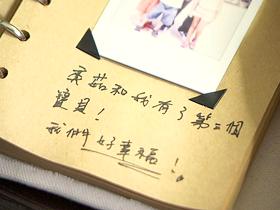 茹和我有了第二個
寶貝!
我們好幸福!